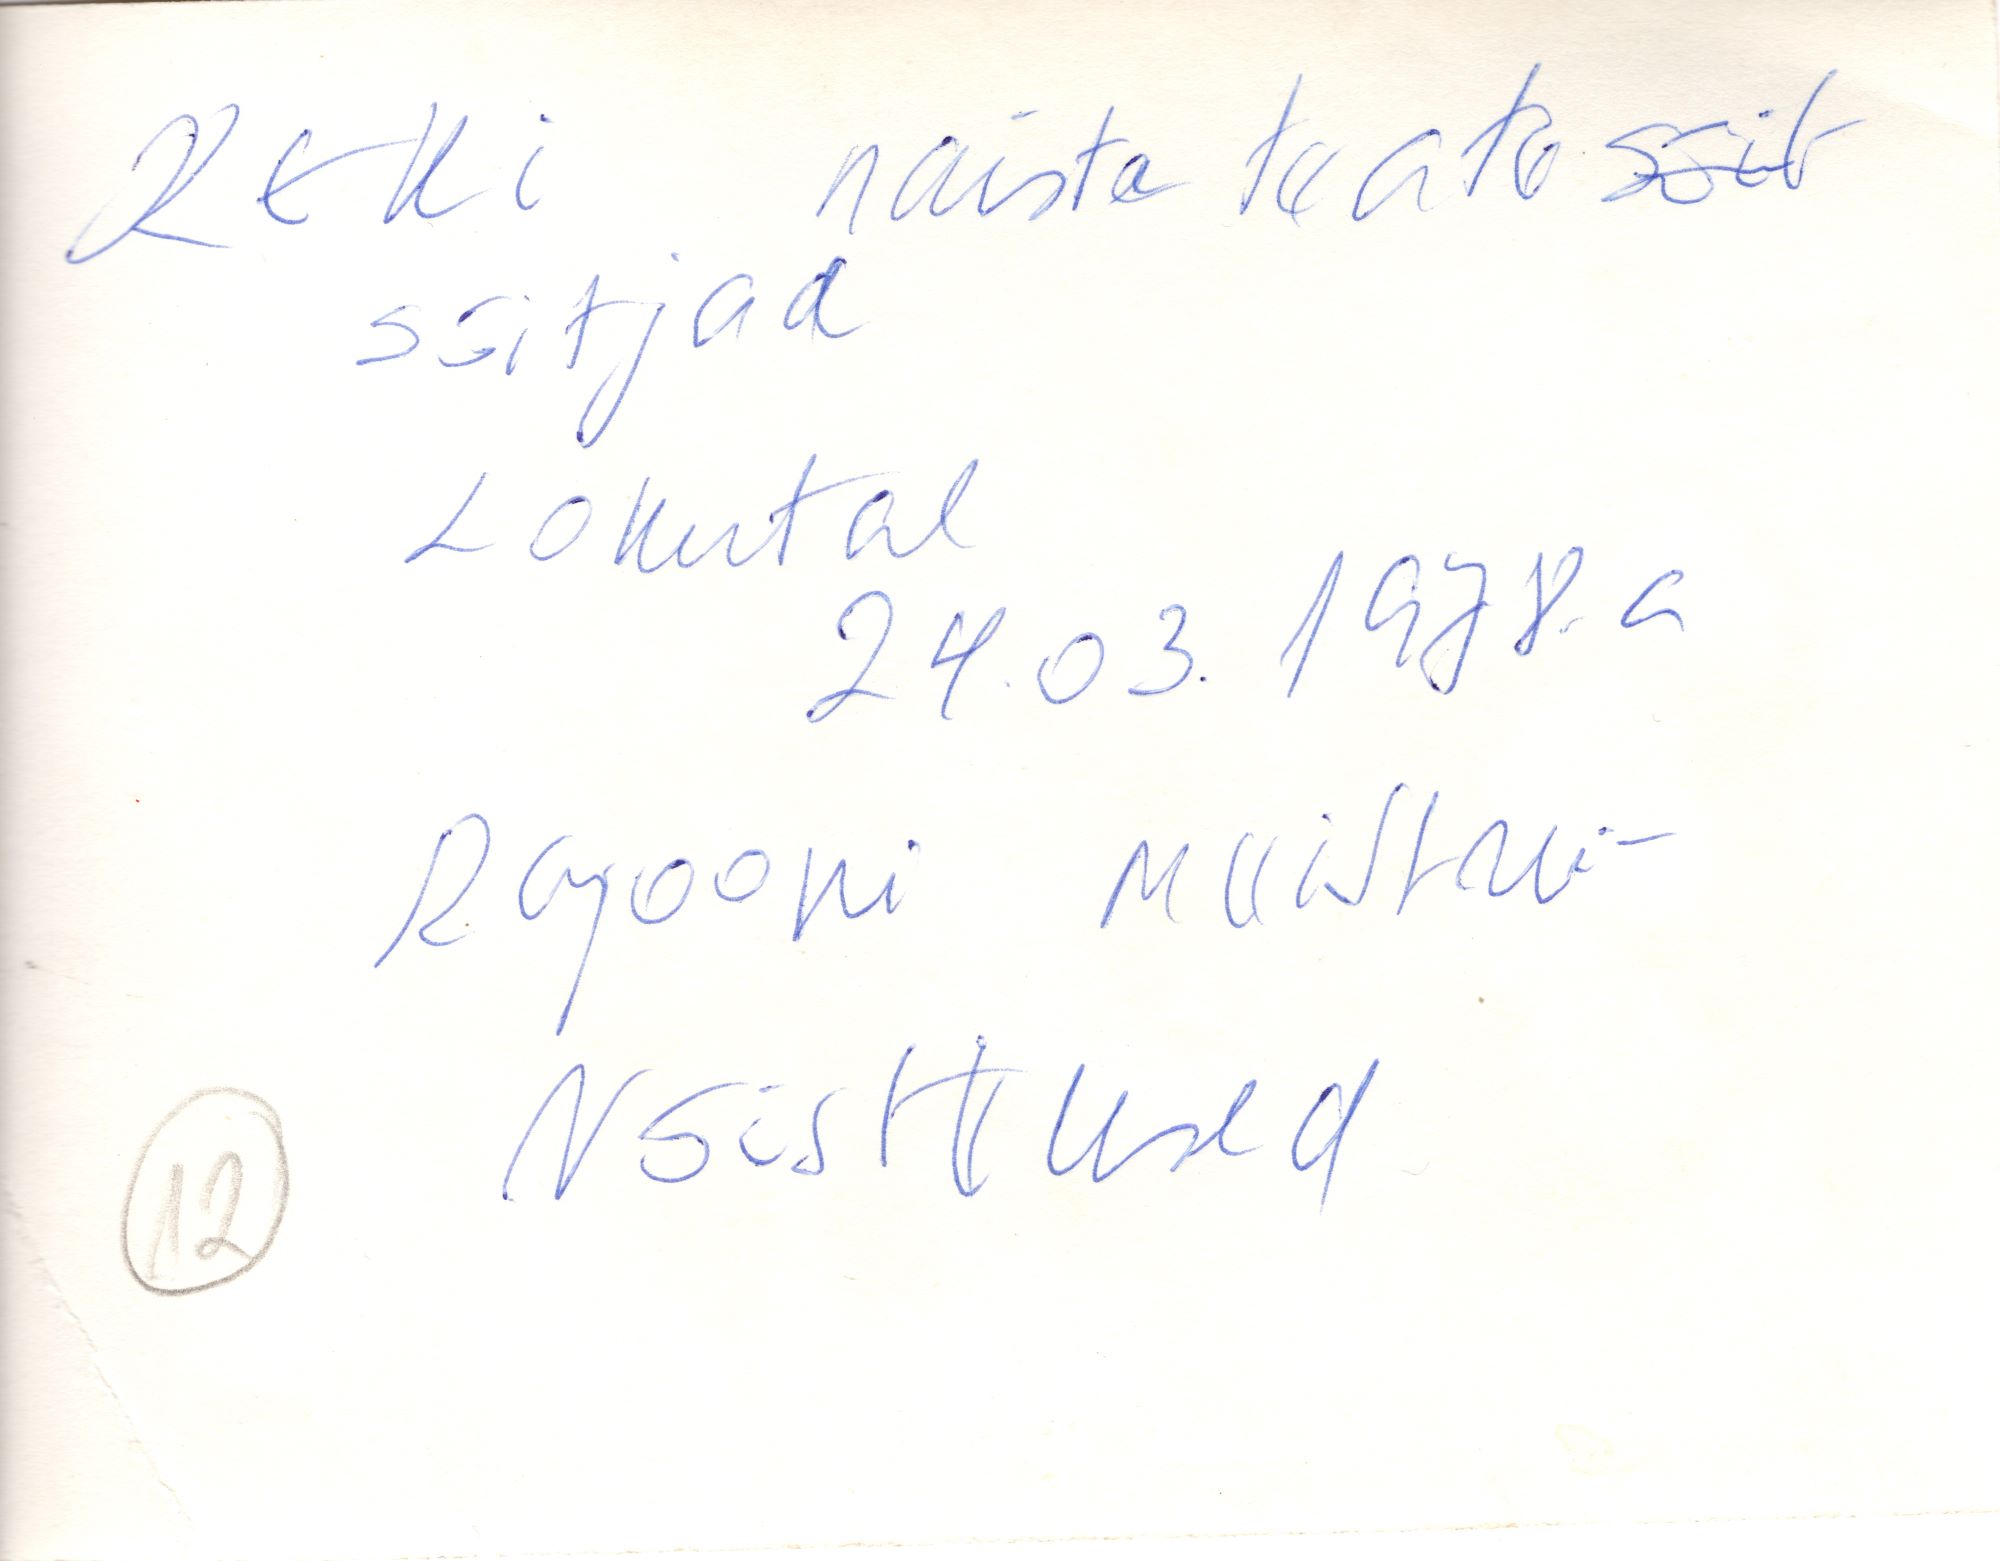 Retki naiste teatesõit
sõitjad
Lokutal
24.03.1978.a
Rajooni meistri-
võistlused
12